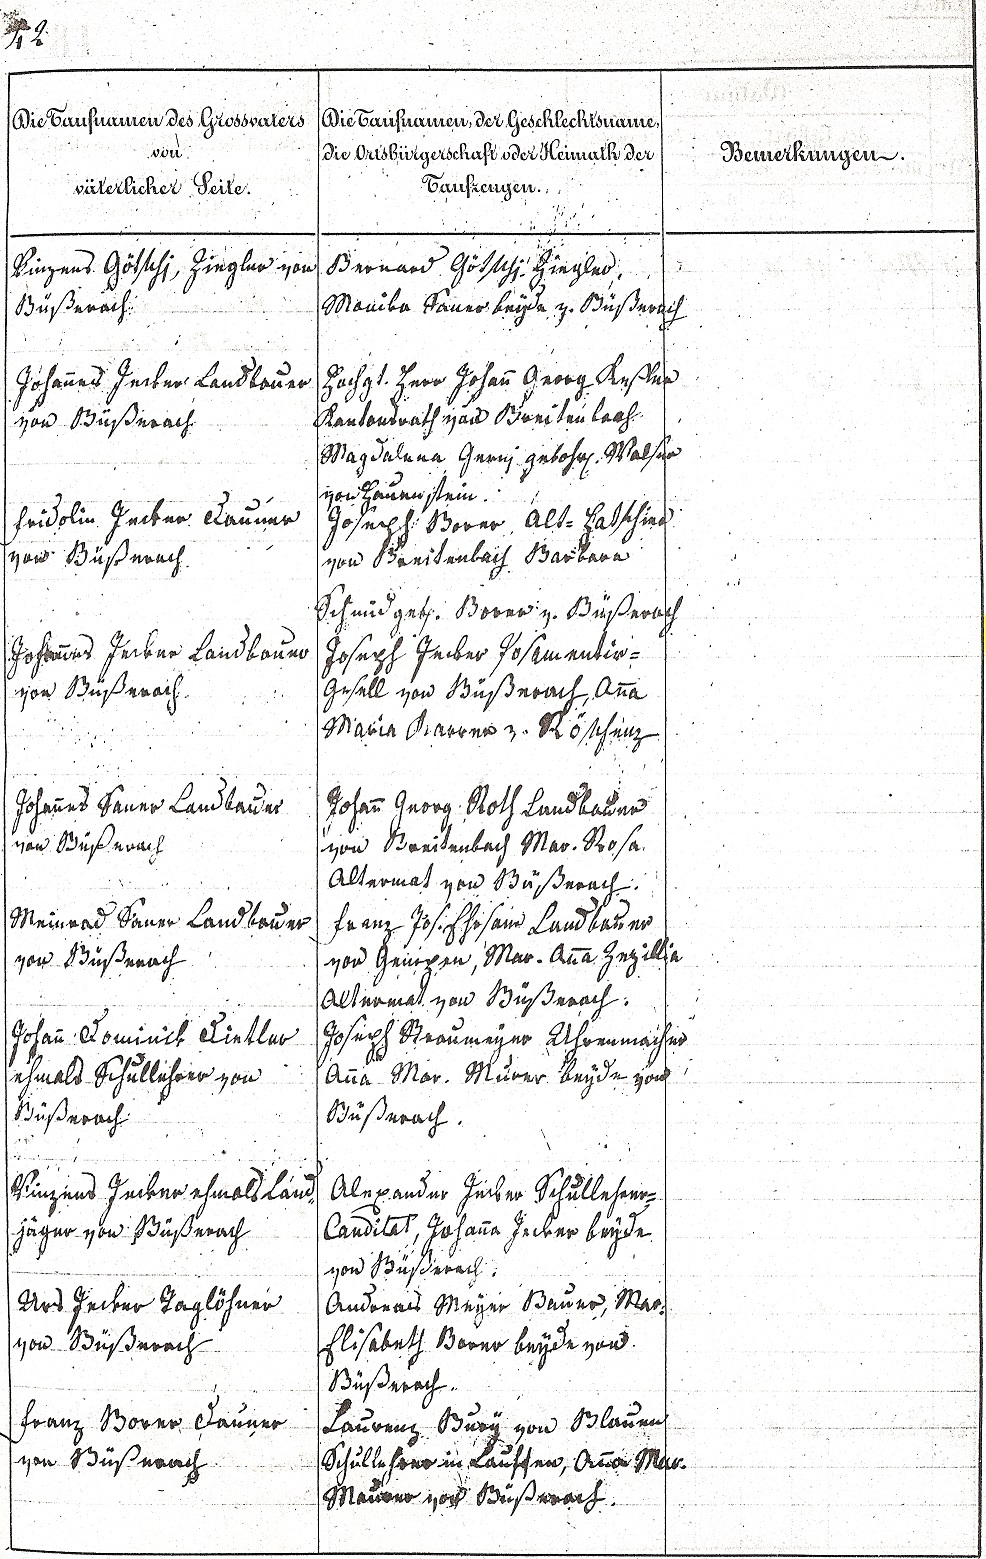 42
Die Taufnamen des Grossvaters
von
väterlicher Seite.
Die Taufnamen, der Geschlechtsname,
die Ortsbürgerschaft oder Heimath der
Taufzeugen.
Bemerkungen.
Vinzens Götschj, Ziegler von
Büßerach
Bernard Götschj Ziegler,
Monika Saner beyde v. Büßerach
Johannes Jecker Landbauer
von Büßerach
Hochgt. Herr Johann Georg Keßler
Kantonsrath von Breitenbach
Magdalena Gernj gebohr. Walser
von Hauenstein.
Fridolin Jecker Tauner
von Büßerach
Joseph Borer Alt-Hatschier
von Breitenbach Barbara
Schmid geb. Borer v. Büßerach
Johannes Jecker Landbauer
von Büßerach
Joseph Jecker Posamentir=
Gesell von Büßerach, Anna
Maria Karrer v. Röschenz
Johannes Saner Landbauer
von Büßerach
Johann Georg Roth Landbauer
von Breitenbach Mar. Rosa
Altermat von Büßerach.
Meinrad Saner Landbauer
von Büßerach
Franz Jos. Ehrsam Landbauer
von Gempen, Mar. Anna Zezillia
Altermat von Büßerach.
Johann Dominick Dietler
ehmals Schullehrer von
Büßerach
Joseph Straumeyer Uhrenmacher
Anna Mar. Murer beyde von
Büßerach.
Vinzens Jecker ehmals Land=
jäger von Büßerach
Alexander Jecker Schullehrer=
Canditat, Johanna Jecker beyde
von Büßerach.
Urs Jecker Taglöhner
von Büßerach
Andreas Meyer Bauer, Mar.
Elisabeth Borer beyde von
Büßerach.
Franz Borer Tauner
von Büßerach
Laurenz Bury von Blauen
Schullehrer in Lauffen, Anna Mar.
Maurer von Büßerach.